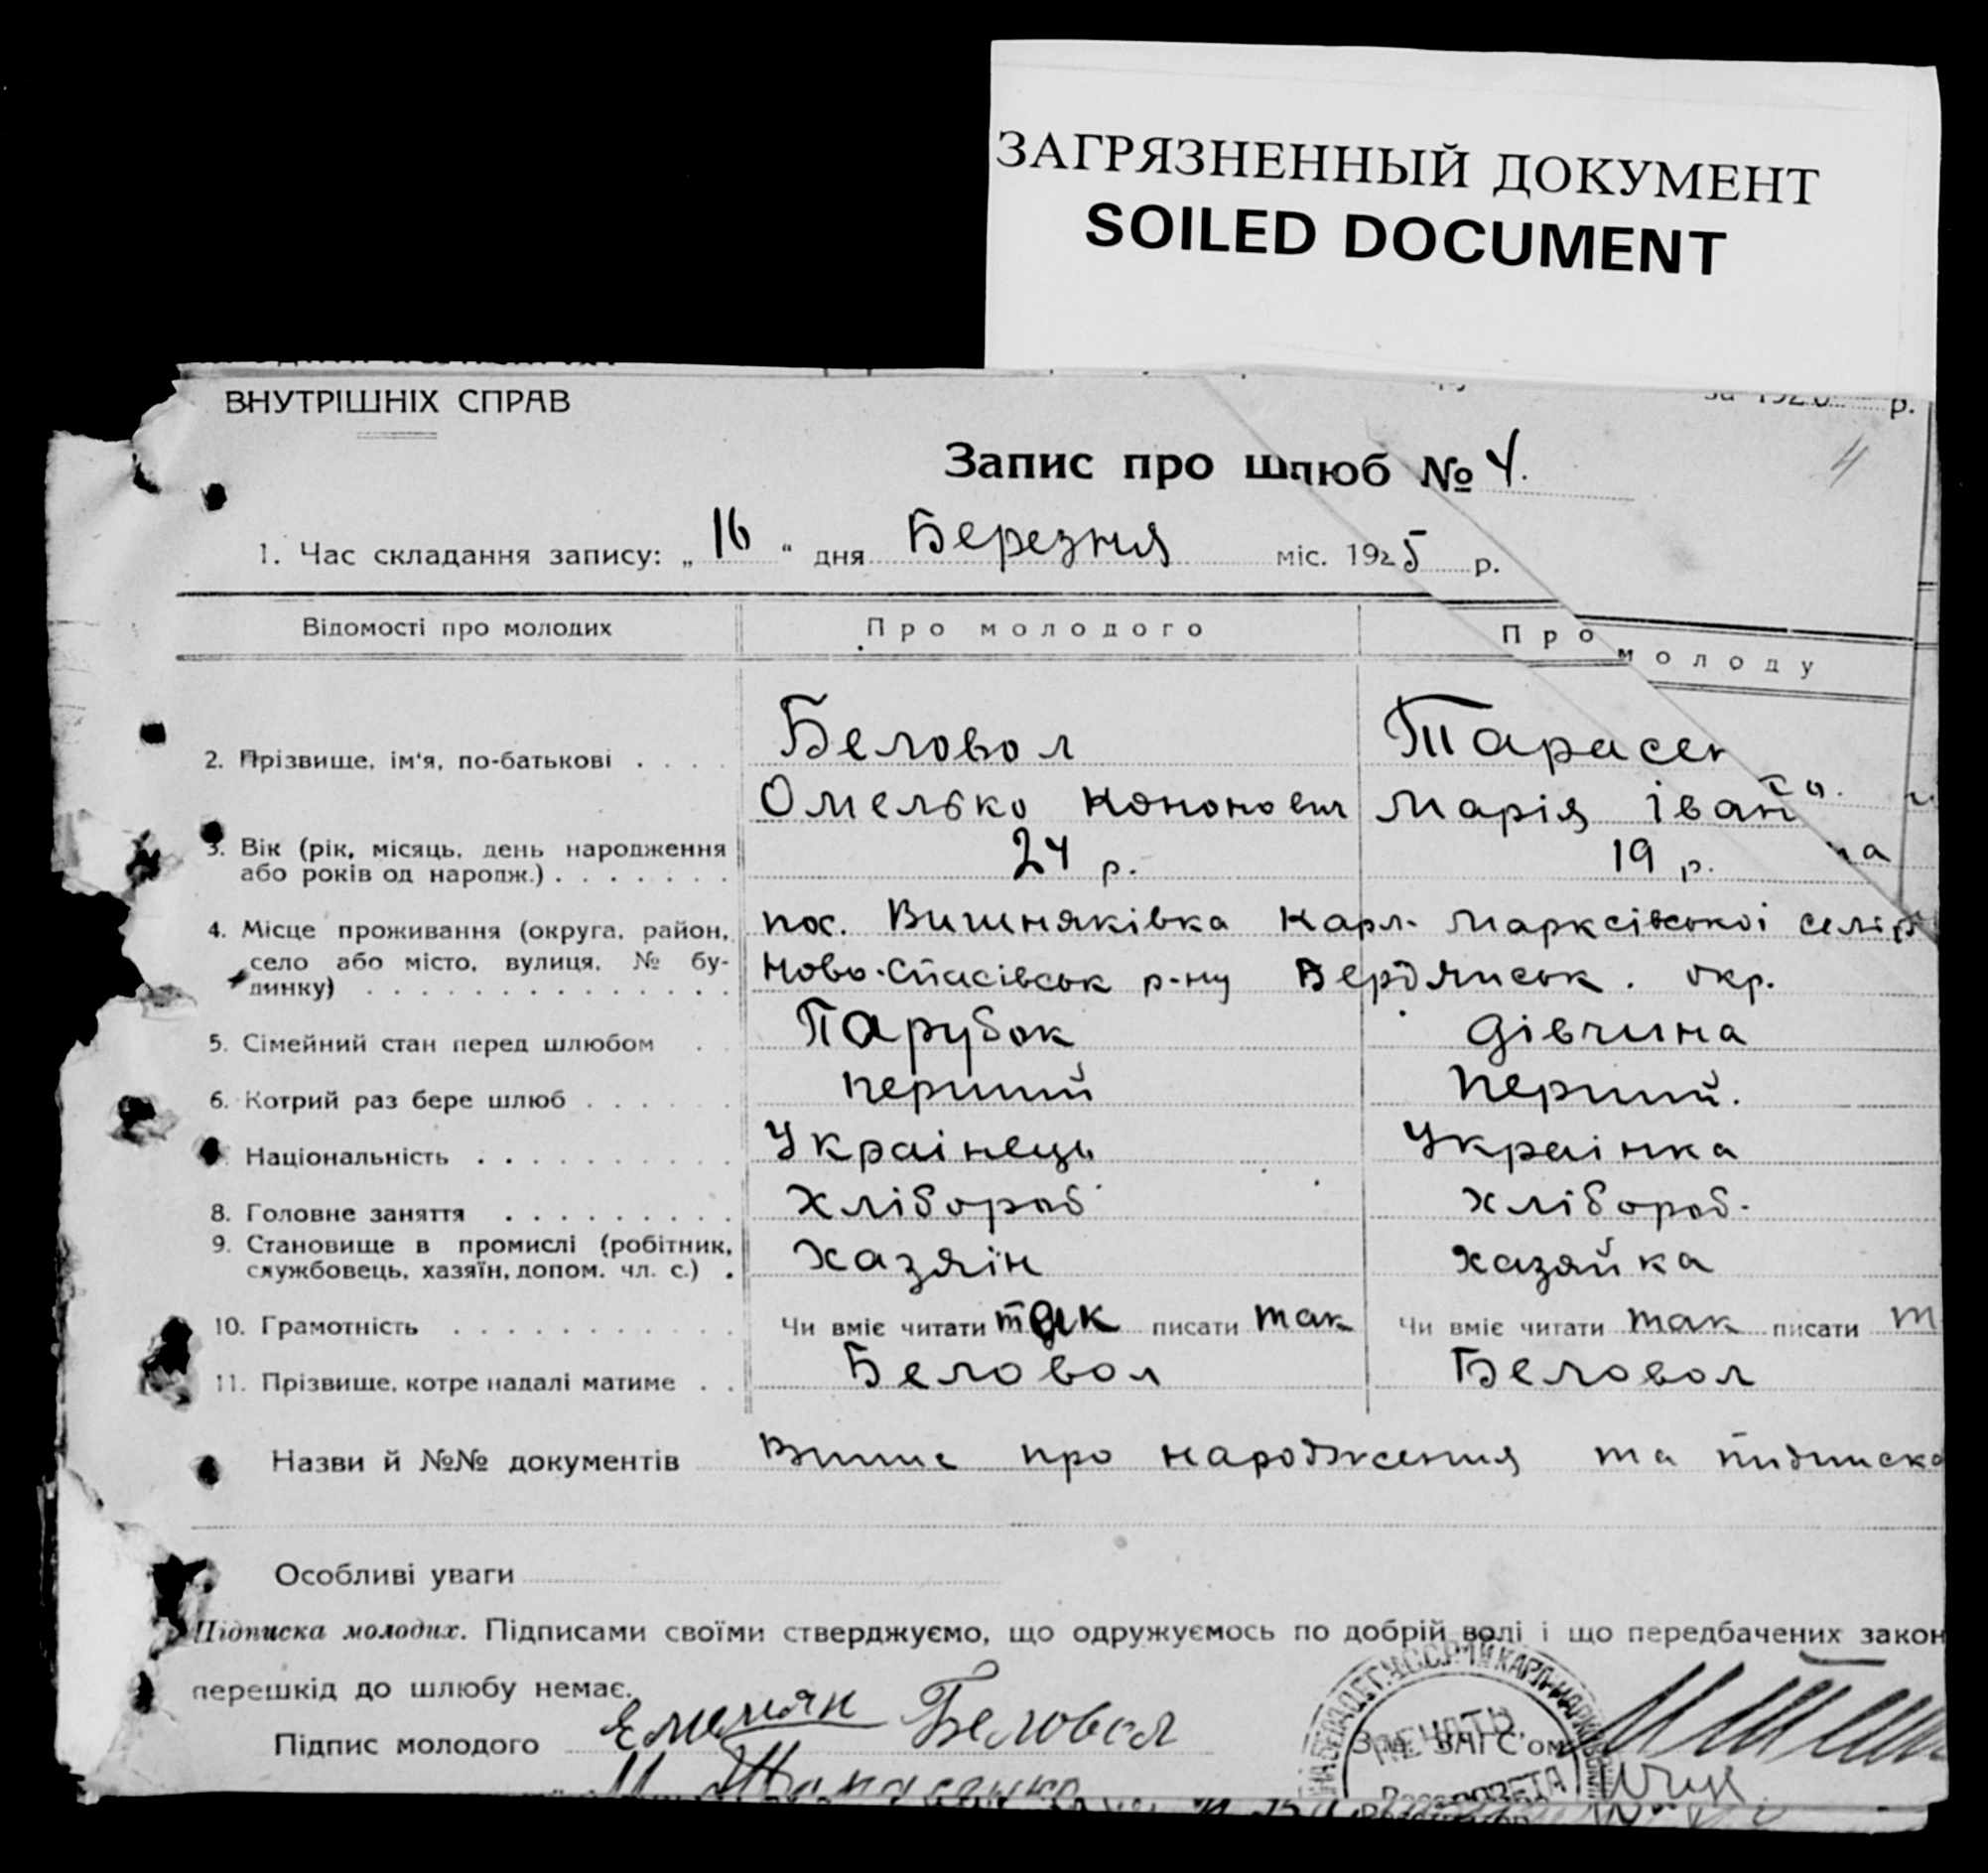 ЗАГРЯЗНЕННЫЙ ДОКУМЕНТ
SOILED DOCUMENT
ВНУТРІШНІХ СПРАВ
р.
4
Запис про шлюб № 4.
1. Час складання запису: „ 16 “ дня Березня міс. 1925 р.
Відомості про молодих Про молодого Про молоду
2. Прізвище, ім'я, по-батькові . . . . Беловол Тарасенко.
Омелько Кононович Марія Іван на
3. Вік (рік, місяць, день народження 24 р. 19 р.
або років од народж.) . . . . . . .
4. Місце проживання (округа, район, пос. Вишняківка Карл-Марксівської
село або місто, вулиця, № бу- Ново-Спасівськ р-ну Бердянськ. окр.
динку) . . . . . . . . . . . . . .
5. Сімейний стан перед шлюбом . . Парубок дівчина
6. Котрий раз бере шлюб . . . . . . перший перший.
Національність . . . . . . . . . . Українець Українка
8. Головне заняття . . . . . . . . . Хлібороб Хлібороб.
9. Становище в промислі (робітник, Хазяін хазяйка
службовець, хазяїн, допом. чл. с.) .
10. Грамотність . . . . . . . . . . . Чи вміє читати так писати так Чи вміє читати так писати т
11. Прізвище, котре надалі матиме . . Беловол Беловол
Назви й №№ документів Випис про народження та підписка
Особливі уваги
Підписка молодих. Підписами своїми стверджуємо, що одружуємось по добрій волі і що передбачених закон
перешкід до шлюбу немає.
Підпис молодого Емельян Беловол
М Тарасенко
ПЕЧАТЬ
Зав. ЗАГС'ом